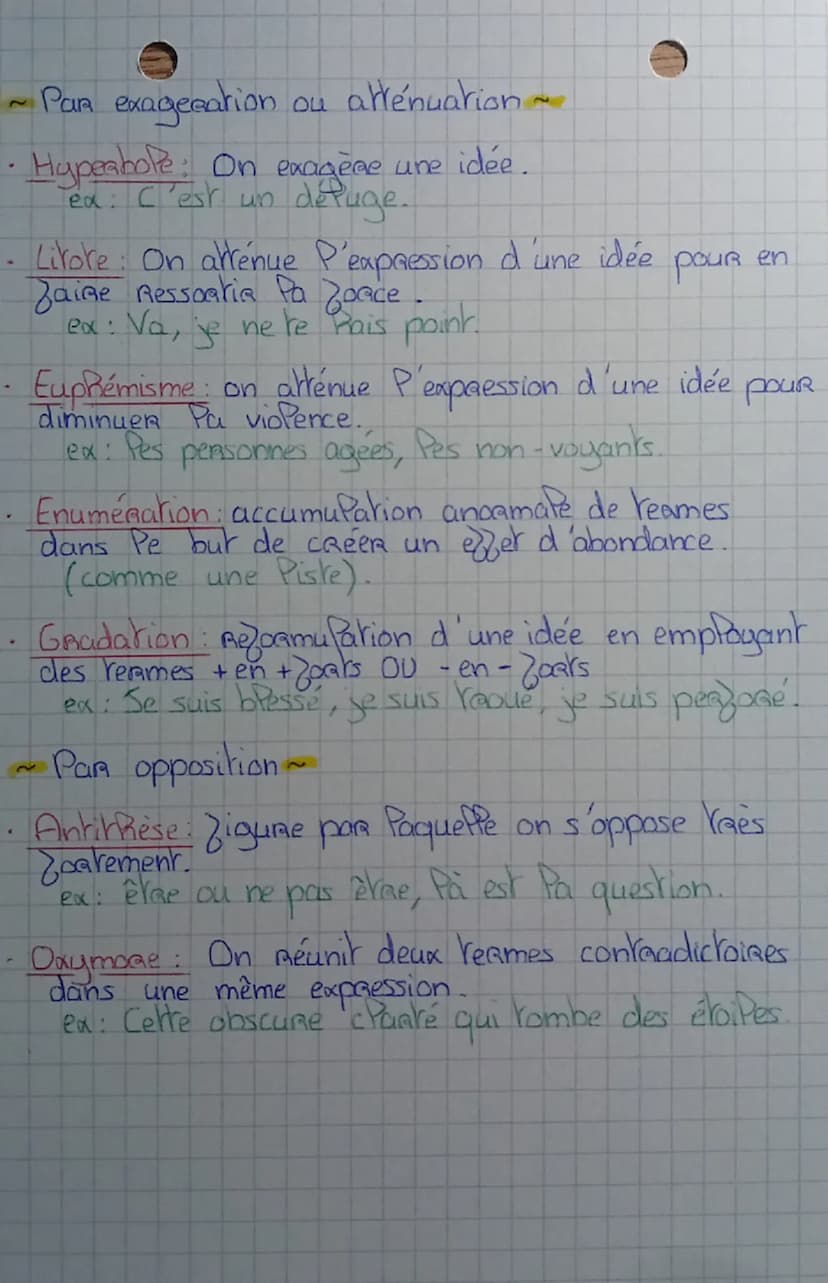 ~ Par exageration ou atténuation ~
· Hyperbole : On exagère une idée.
ex : C'est un déluge.
· Litote : On atténue l'expression d'une idée pour en
faire ressortir la force.
ex : Va, je ne te hais point.
· Euphémisme : on atténue l'expression d'une idée pour
diminuer la violence.
ex : les personnes agées, les non-voyants.
· Enumération : accumulation anormale de termes
dans le but de créer un effet d'abondance.
(comme une liste).
· Gradation : Reformulation d'une idée en employant
des termes + en + forts OU - en - forts
ex : Je suis blessé, je suis troué, je suis perforé.
~ Par opposition ~
· Antithèse : figure par laquelle on s'oppose très
fortement.
ex : être ou ne pas être, là est la question.
- Oxymore : On réunit deux termes contradictoires
dans une même expression.
ex : Cette obscure clarté qui tombe des étoiles.